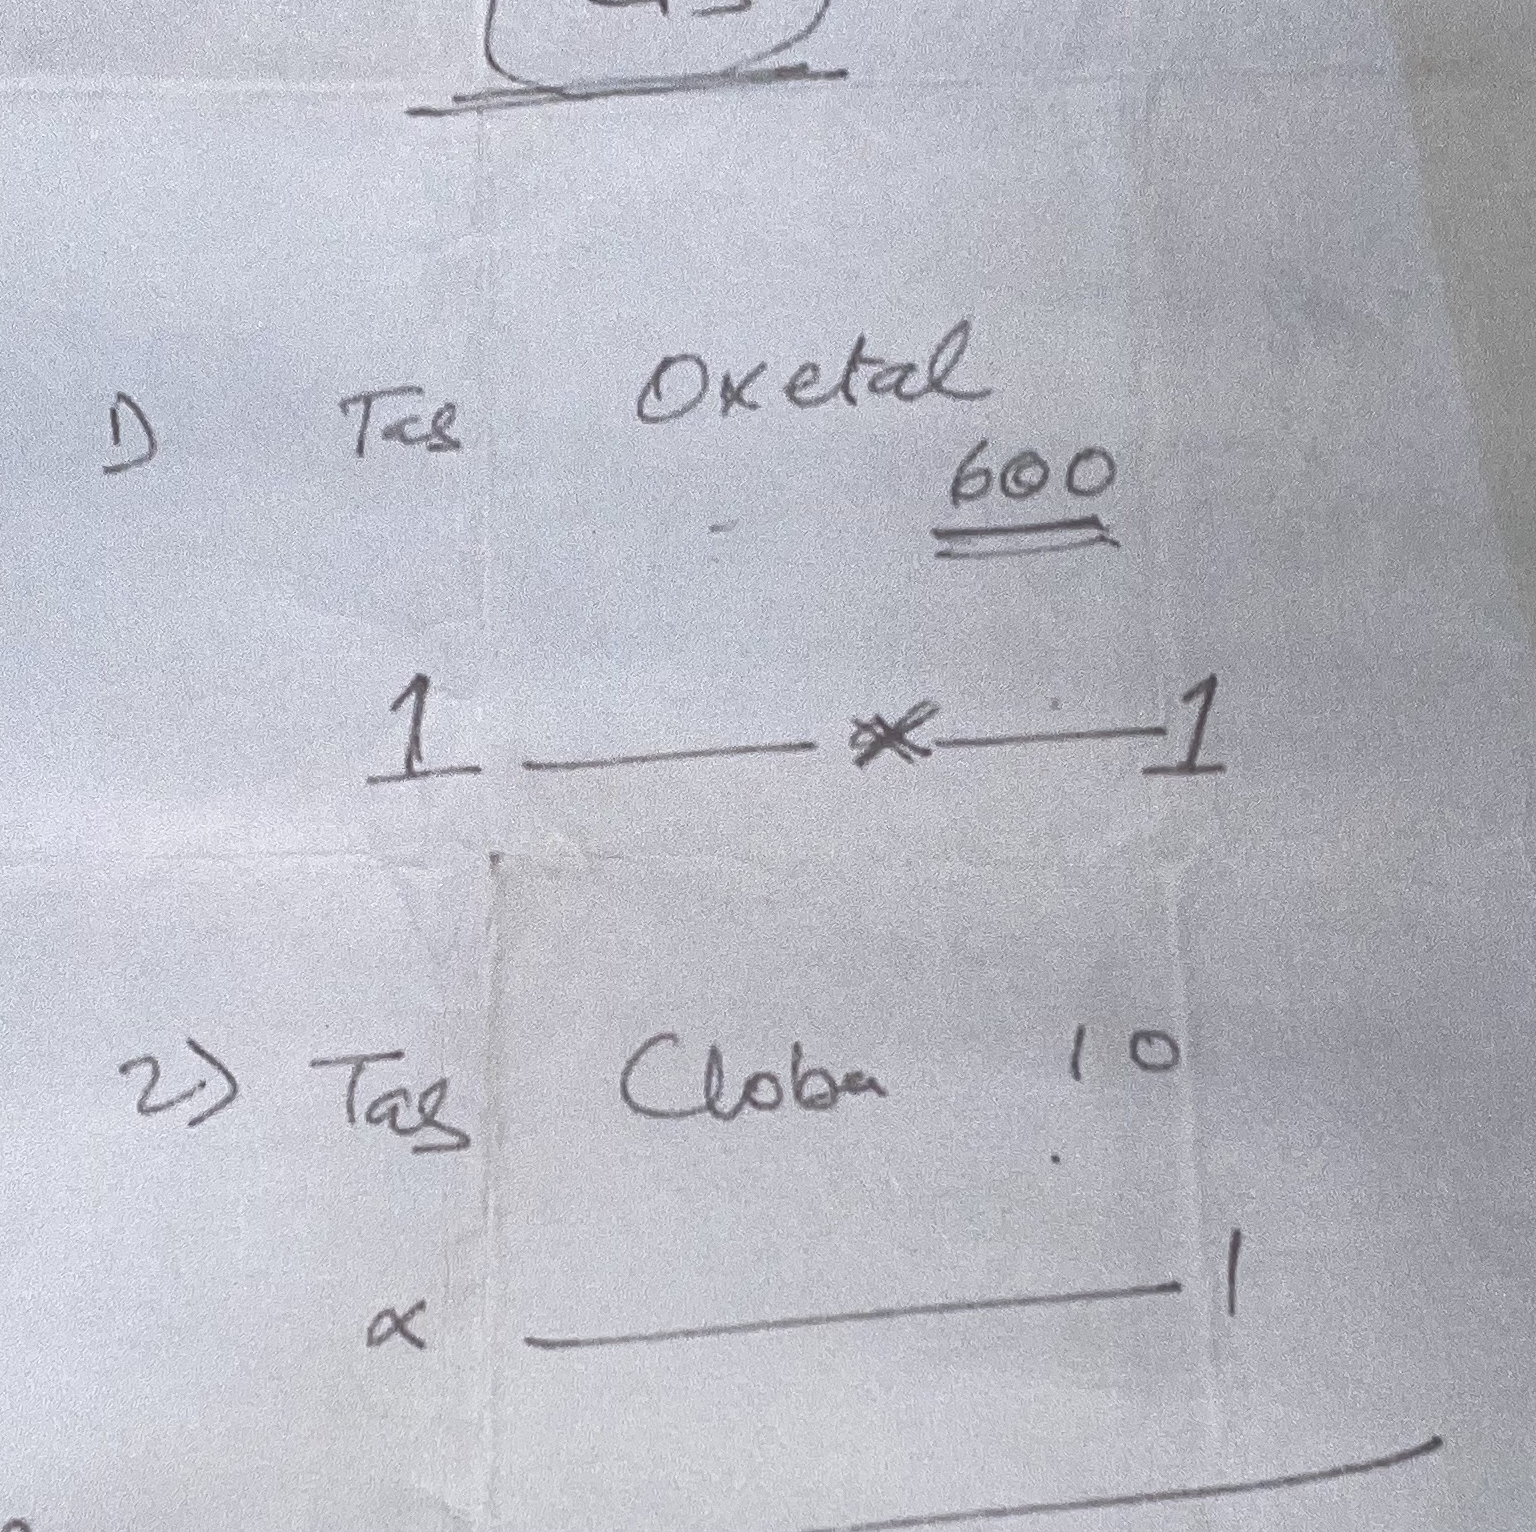 1) Tab Oxetal
600
1 — x — 1
2) Tab Cloba 10
x — 1